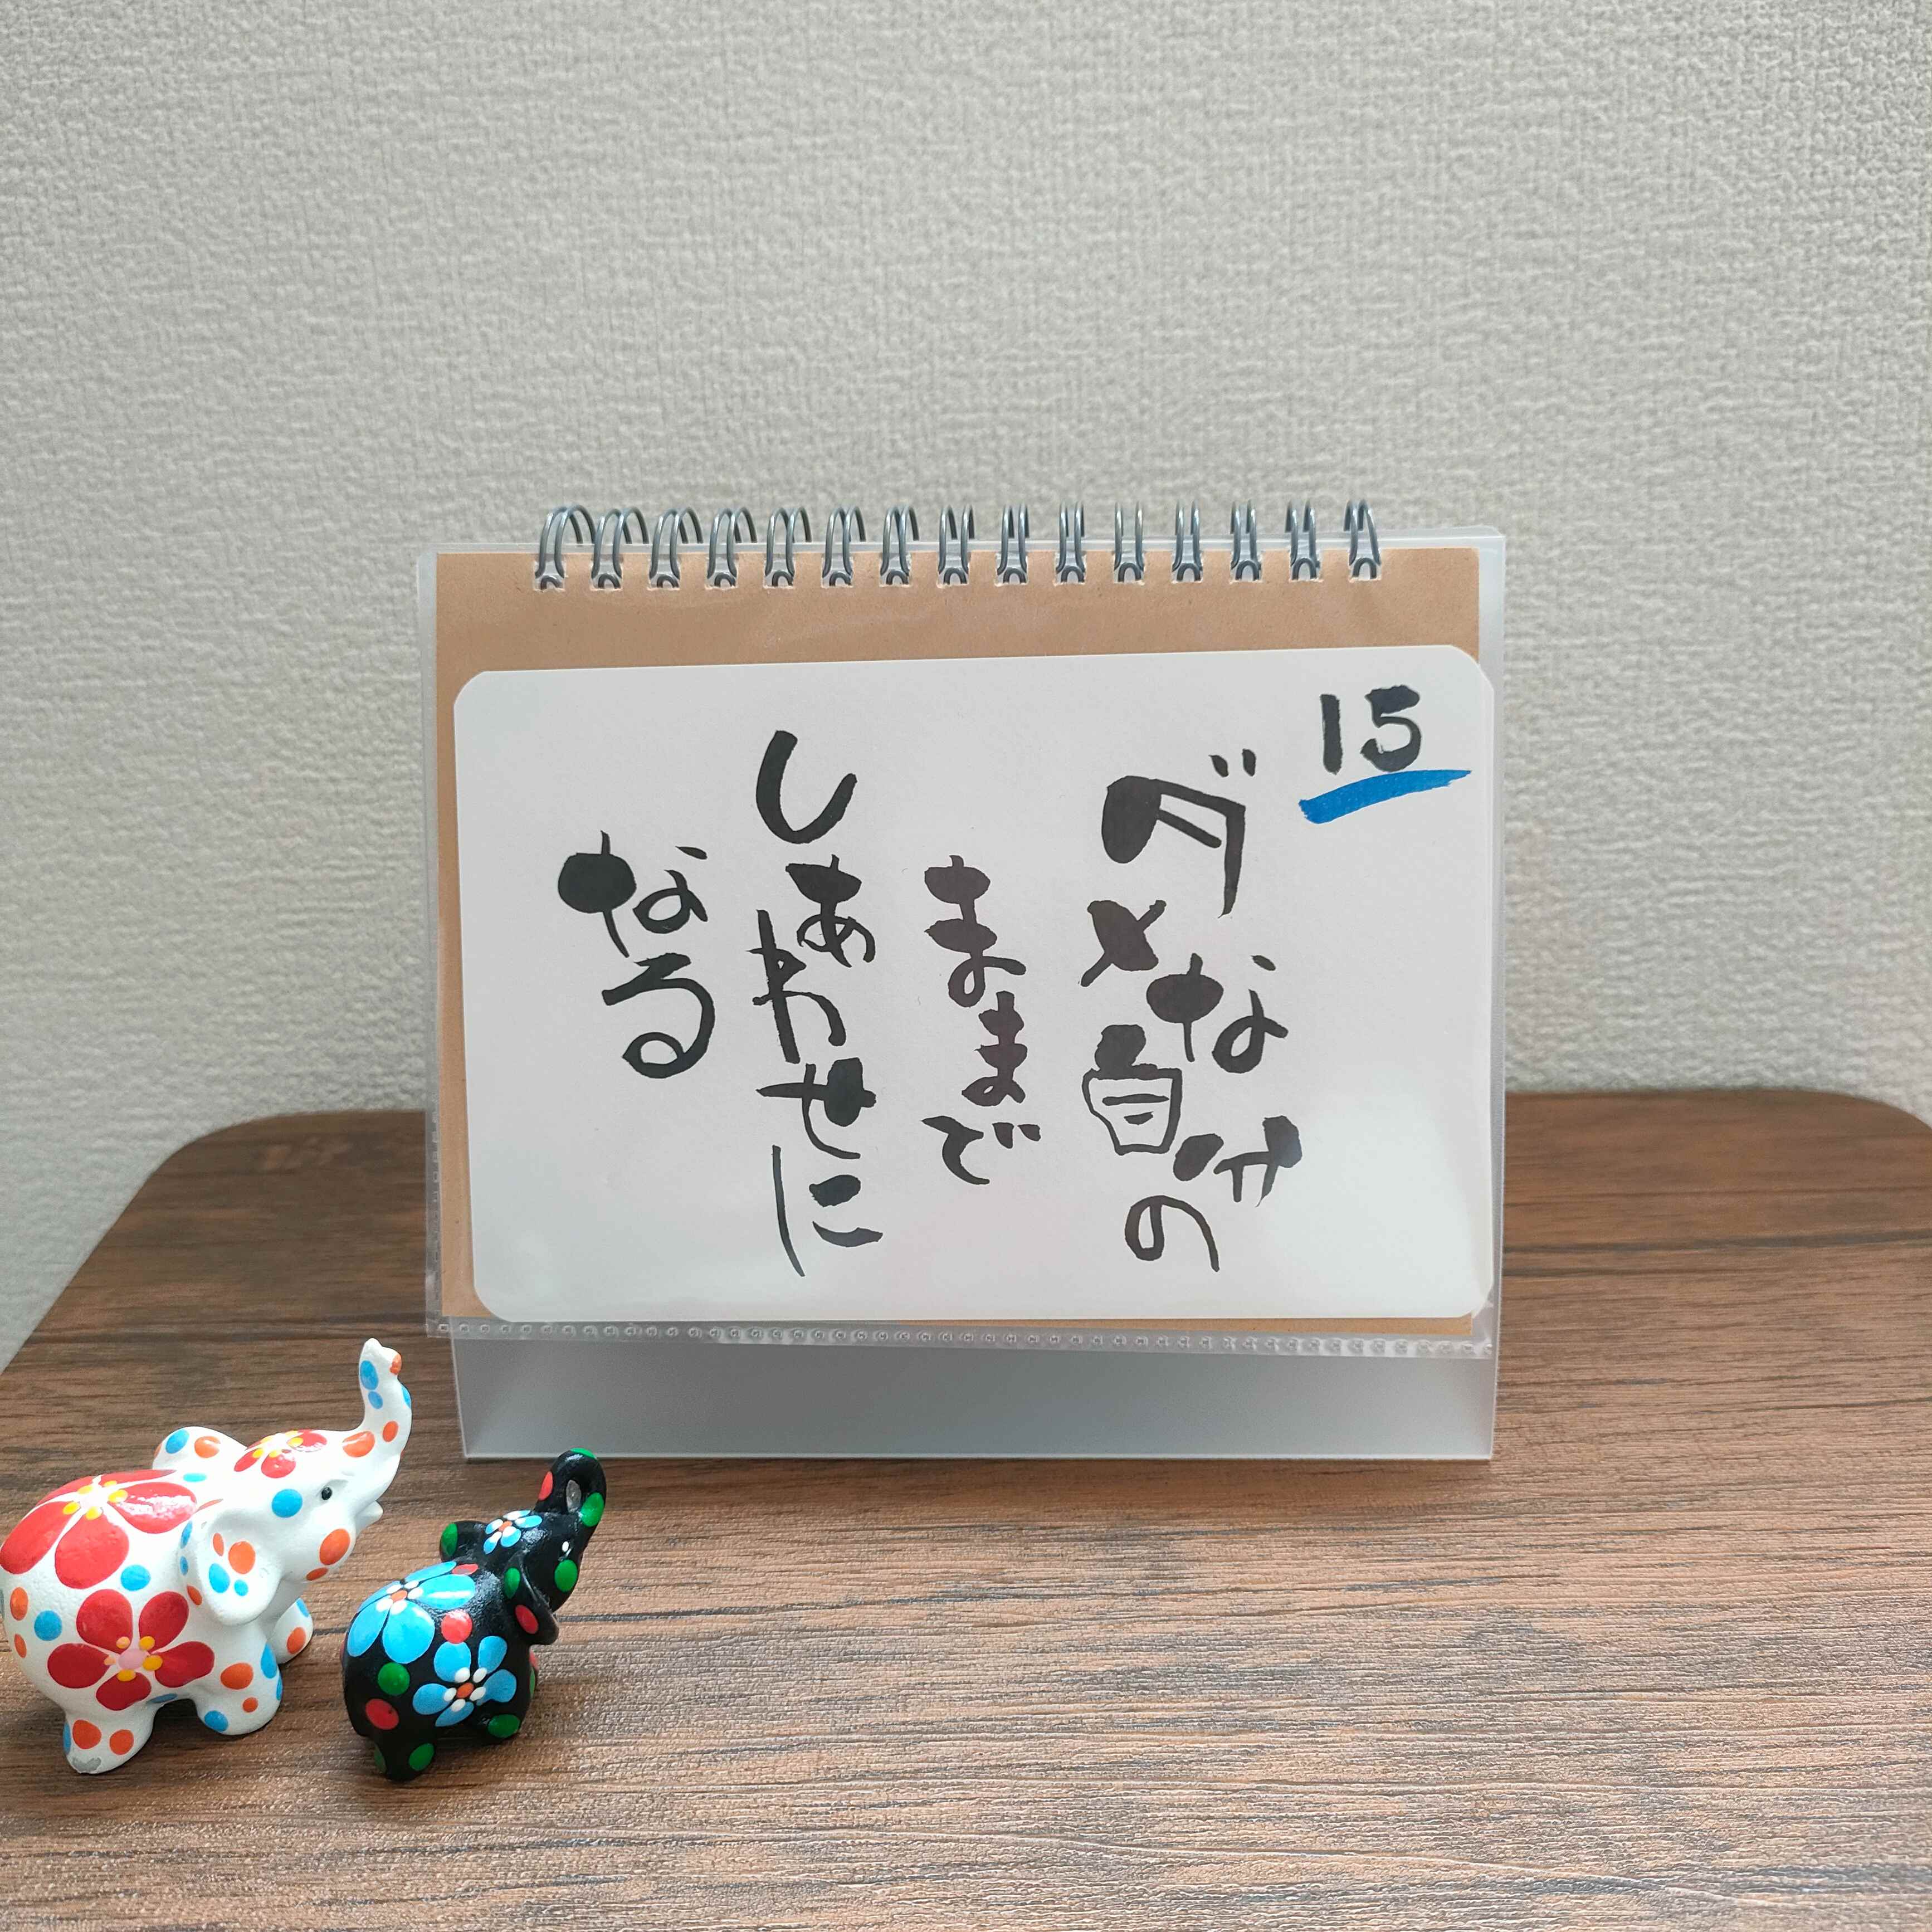 15
ダメな自分の
ままで
しあわせに
なる